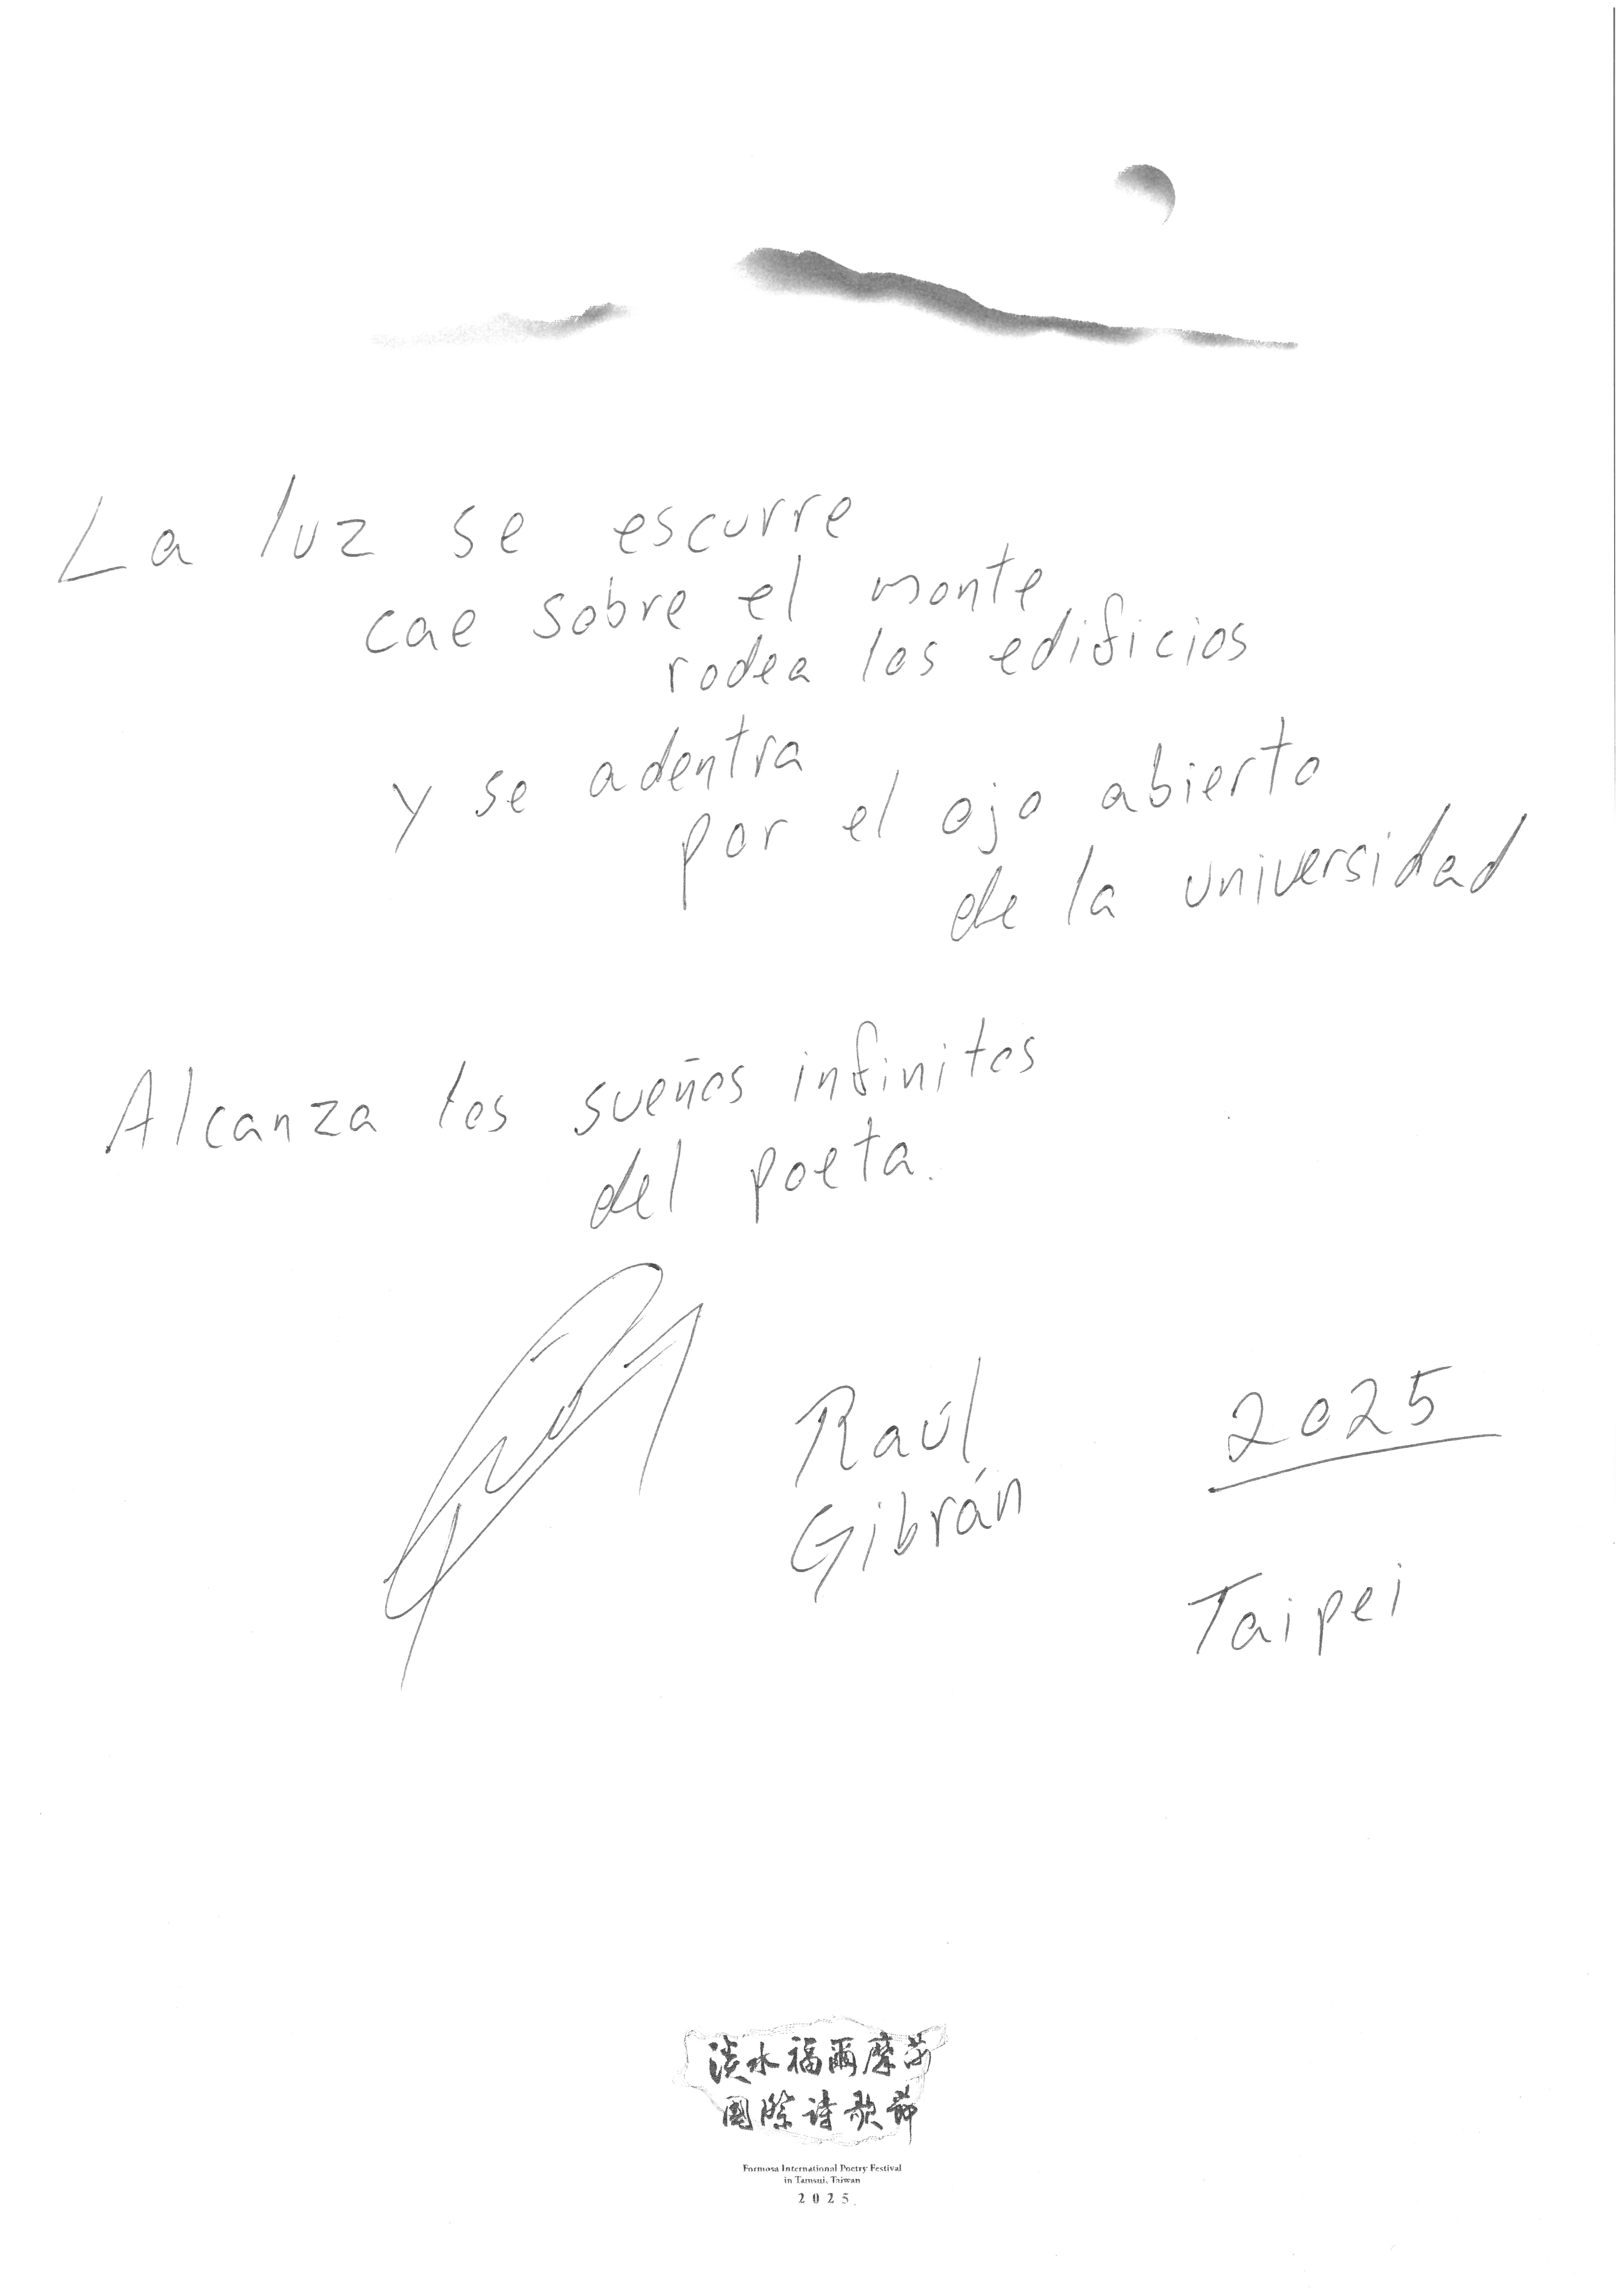 La luz se escurre
cae sobre el monte
rodea los edificios
y se adentra
por el ojo abierto
de la universidad
Alcanza los sueños infinitos
del poeta.
Raúl
Gibrán
2025
Taipei
淡水福爾摩莎
國際詩歌節
Formosa International Poetry Festival
in Tamsui, Taiwan
2025